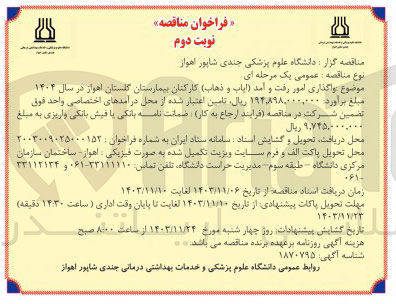 « فراخوان مناقصه»
نوبت دوم
مناقصه گزار : دانشگاه علوم پزشکی جندی شاپور اهواز
نوع مناقصه : عمومی یک مرحله ای
موضوع :واگذاری امور رفت و آمد (ایاب و ذهاب) کارکنان بیمارستان گلستان اهواز در سال ۱۴۰۴
مبلغ برآورد: ۱۹۴,۸۹۸,۰۰۰,۰۰۰ ریال، تامین اعتبار شده از محل درآمدهای اختصاصی واحد فوق
تضمین شرکت در مناقصه (فرایند ارجاع به کار) : ضمانت نامه بانکی یا فیش بانکی واریزی به مبلغ
۹,۷۴۵,۰۰۰,۰۰۰ ریال
محل دریافت، تحویل و گشایش اسناد : سامانه ستاد ایران به شماره فراخوان : ۲۰۰۳۰۰۹۰۲۵۰۰۰۱۵۲
محل تحویل پاکت الف و فرم سایت ویزیت تکمیل شده به صورت فیزیکی : اهواز- ساختمان سازمان
مرکزی دانشگاه – طبقه سوم–مدیریت حراست دانشگاه، تلفن تماس: ۳۳۱۱۱۱۱۰-۰۶۱ و ۳۳۱۱۲۱۳۴
-۰۶۱
زمان دریافت اسناد مناقصه: از تاریخ ۱۴۰۳/۱۱/۰۶ لغایت ۱۴۰۳/۱۱/۱۰
مهلت تحویل پاکات پیشنهادی: از تاریخ ۱۴۰۳/۱۱/۱۰ لغایت تا پایان وقت اداری ( ساعت ۱۴:۳۰ دقیقه)
۱۴۰۳/۱۱/۲۳
تاریخ گشایش پیشنهادات: روز چهار شنبه مورخ ۱۴۰۳/۱۱/۲۴ از ساعت ۸:۰۰ صبح
هزینه آگهی روزنامه برعهده برنده مناقصه می باشد.
شناسه آگهی: ۱۸۷۰۷۹۵
روابط عمومی دانشگاه علوم پزشکی و خدمات بهداشتی درمانی جندی شاپور اهواز